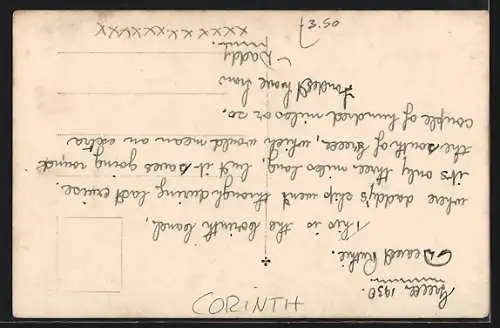 Greece 1930.
Dearest Ruthie.
This is the Corinth Canal,
where daddy's ship went through during last cruise.
its only three miles long, but it saves going round
the south of Greece, which would mean an extra
couple of hundred miles or so.
Fondest love from
Daddy
xxxx
xxxxxxxxxx
CORINTH
3.50